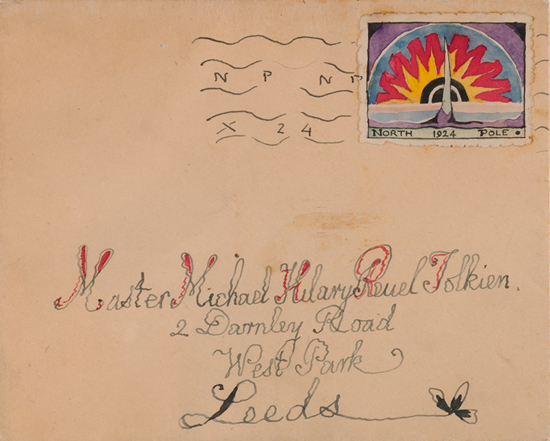 N P N P
X 24
NORTH 1924 POLE.
Master Michael Hilary Reuel Tolkien.
2 Darnley Road
West Park
Leeds